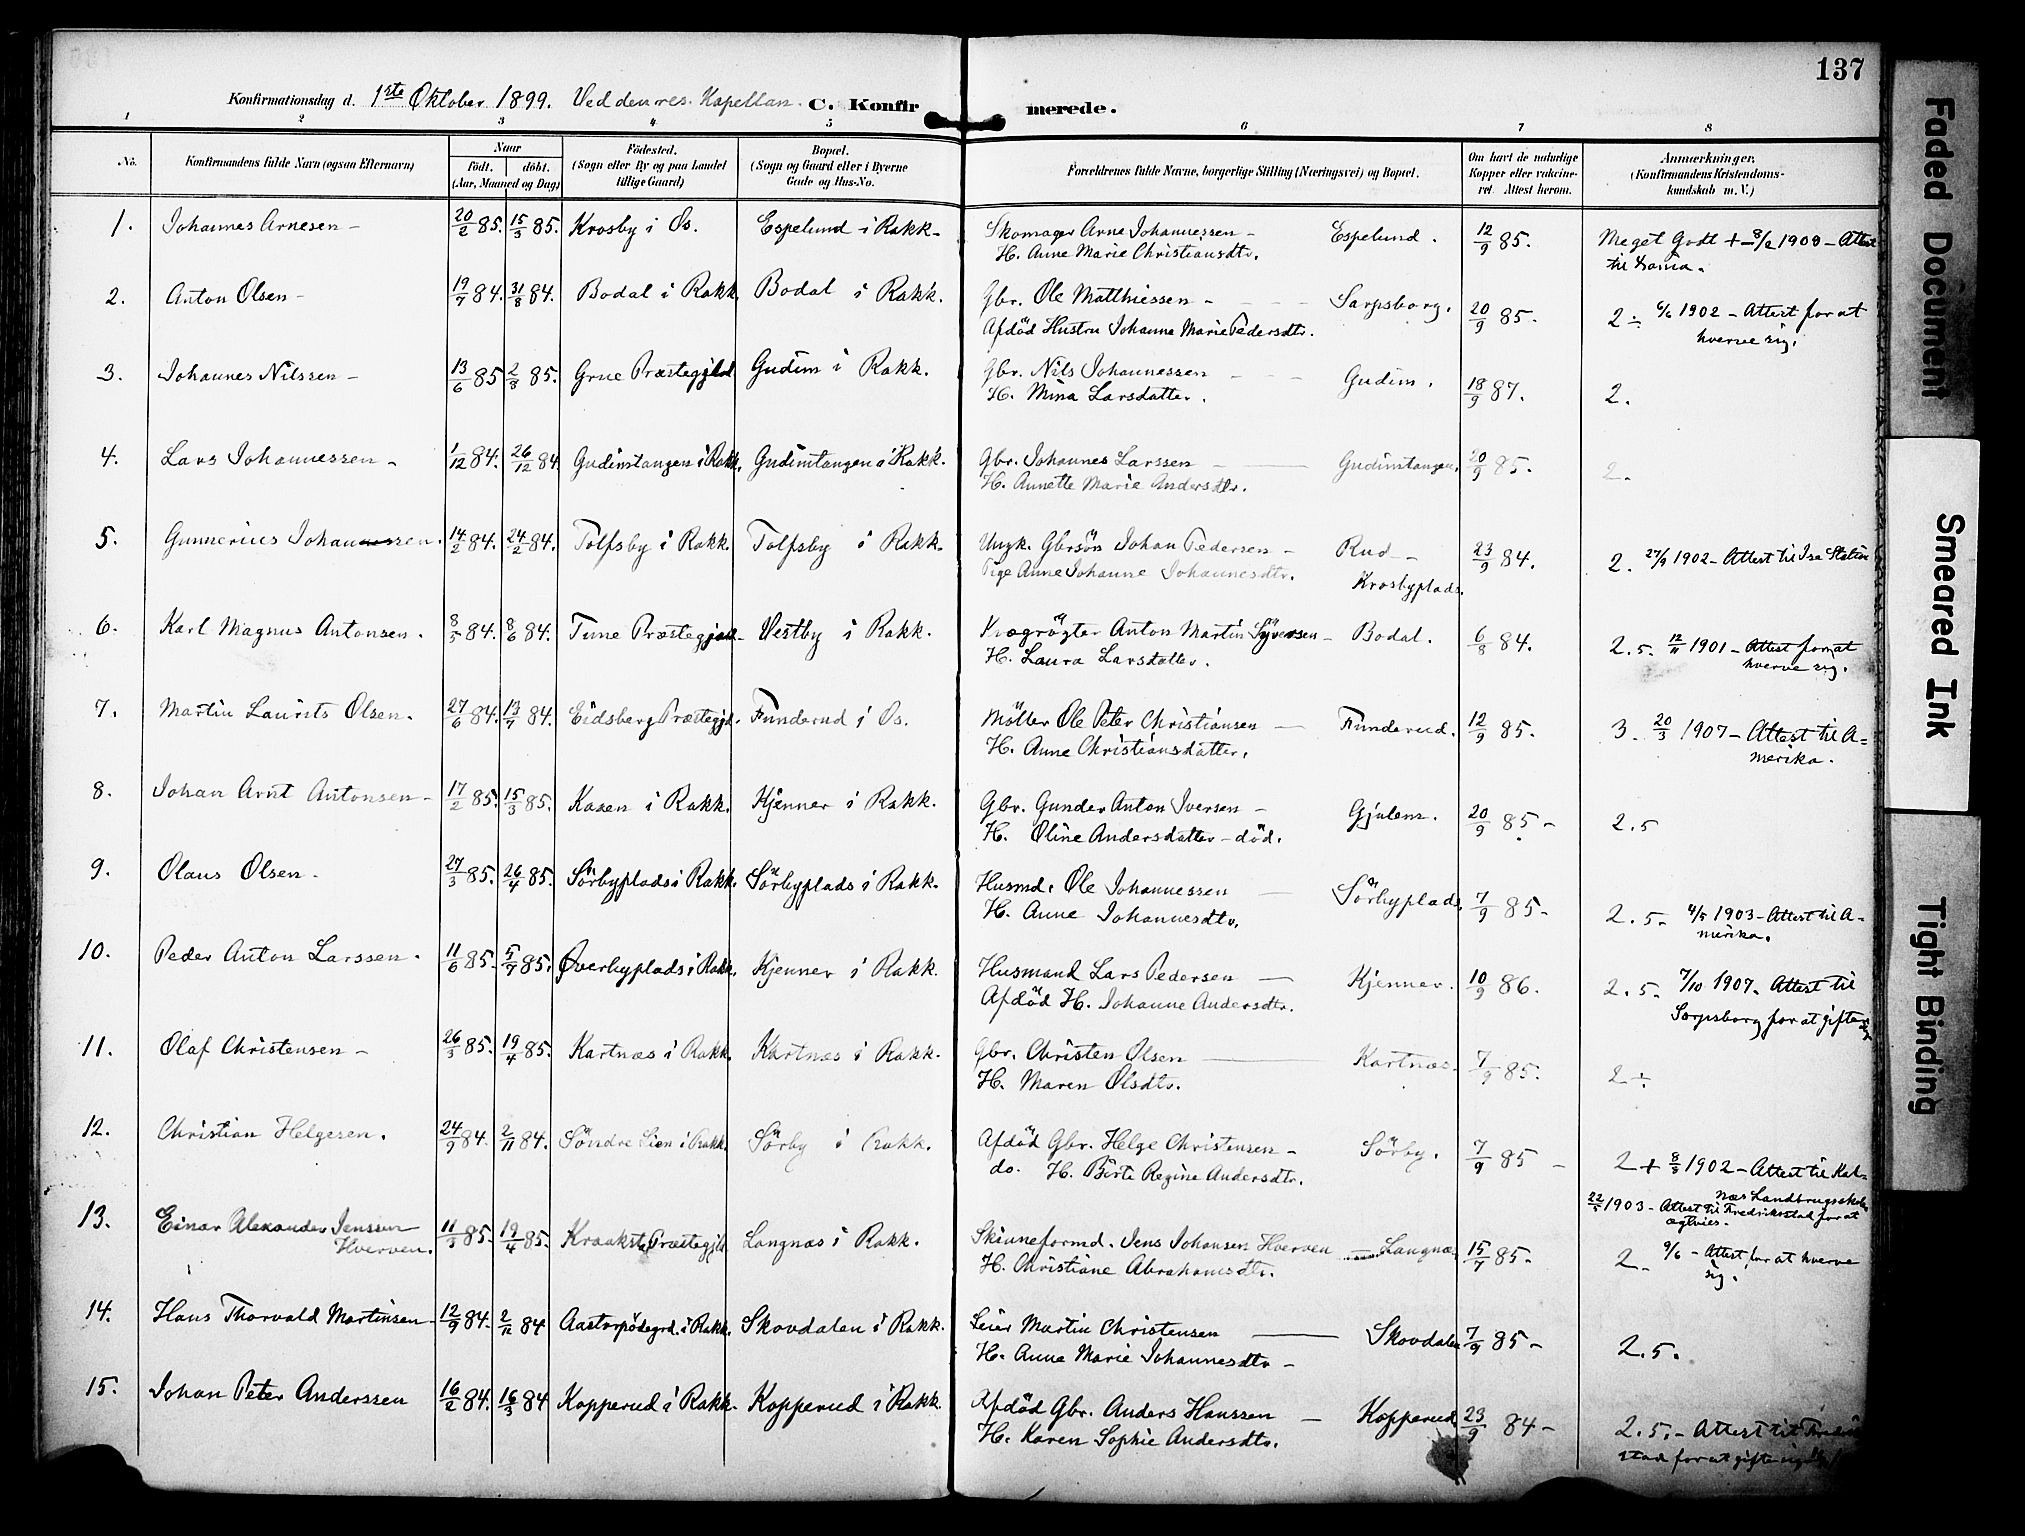 137
Konfirmationsdag d. 1ste Oktober 1899. Ved den res. Kapellan. C. Konfirmerede.
1 2 3 4 5 6 7 8
No. Konfirmandens fulde Navn (ogsaa Efternavn) Naar født. døbt. (Aar, Maaned og Dag) Fødested. (Sogn eller By og paa Landet tillige Gaard) Bopæl. (Sogn og Gaard eller i Byerne Gade og Hus-No. Forældrenes fulde Navne, borgerlige Stilling (Næringsvei) og Bopæl. Om havt de naturlige Kopper eller vaccineret. Attest herom. Anmærkninger. (Konfirmandens Kristendomskundskab m. V.)
1. Johannes Arnesen - 20/2 85. 15/3 85. Krosby i Os. Espelund i Rakk. Skomager Arne Johannessen - Espelund. 12/9 85. Meget Godt + - 1900 - Attest
H. Anne Marie Christiansdtr. til
2. Anton Olsen - 19/7 84. 31/8 84. Bodal i Rakk. Bodal i Rakk. Gbr. Ole Matthiessen - Sarpsborg. 20/9 85. 2 ÷ 6/6 1902 - Attest for at
Afdöd Hustru Johanne Marie Pedersdtr. hverve sig.
3. Johannes Nilssen - 13/6 85 2/8 85. Grue Præstegjeld Gudim i Rakk. Gbr. Nils Johannessen - Gudim. 18/9 87. 2.
H. Mina Larsdatter.
4. Lars Johannessen - 1/12 84. 26/12 84. Gudimtangen i Rakk. Gudimtangen i Rakk. Gbr. Johannes Larssen - Gudimtangen. 20/9 85. 2.
H. Annette Marie Andersdtr.
5. Gunnerius Johannessen. 14/2 84. 24/2 84. Tolfsby i Rakk. Tolfsby i Rakk. Ungk. Gbrsön Johan Pedersen - Rud - 23/9 84. 2. 27/9 1902 - Attest til Ise Station
Pige Anne Johanne Johannesdtr. Krosbyplads.
6. Karl Magnus Antonsen. 8/5 84. 8/6 84. Tune Præstegjeld - Vestby i Rakk. Kragrögter Anton Martin Syversen - Bodal. 6/8 84. 2.5. 12/11 1901 - Attest for at
H. Laura Larsdatter. hverve sig.
7. Martin Laurits Olsen. 27/6 84. 13/7 84. Eidsberg Præstegjl. Funderud i Os. Möller Ole Peter Christiansen - Funderud. 12/9 85. 3. 20/3 1907 - Attest til A=
H. Anne Christiansdatter. merika.
8. Johan Arnt Antonsen - 17/2 85. 15/3 85. Kasen i Rakk. Kjenner i Rakk. Gbr. Gunder Anton Iversen - Gjulem. 20/9 85 - 2.5
H. Oline Andersdatter - död.
9. Olaus Olsen. 27/3 85. 26/4 85. Sörbyplads i Rakk. Sörbyplads i Rakk. Husmd. Ole Johannessen - Sörbyplads. 7/9 85 - 2.5. 4/5 1903 - Attest til A-
H. Anne Johannesdtr. merika.
10. Peder Anton Larssen. 11/6 85. 5/7 85. Øverbyplads i Rakk. Kjenner i Rakk. Husmand Lars Pedersen - Kjenner. 10/9 86. 2.5. 7/10 1907. Attest til
Afdöd H. Johanne Andersdtr. Sarpsborg for at gifte sig
11. Olaf Christensen - 26/3 85. 19/4 85. Kartnæs i Rakk. Kartnæs i Rakk. Gbr. Christen Olsen - Kartnæs. 7/9 85. 2 ÷
H. Maren Olsdtr.
12. Christian Helgesen. 24/9 84. 2/11 84. Söndre Lien i Rakk. Sörby i Rakk. Afdöd Gbr. Helge Christensen - Sörby. 7/9 85 - 2 + 8/8 1902 - Attest til Kal-
do. H. Birte Regine Andersdtr. næs Landbrugsskole
22/5 1903 - Attest til Fredrikstad for at
ægtvies.
13. Einar Alexander Jenssen 11/3 85. 19/4 85. Kraakstad Præstegjld Langnæs i Rakk. Skinneformd. Jens Johansen Hverven - Langnæs 15/7 85. 2. 9/6 - Attest for at hverve
Hverven. H. Christiane Abrahamsdtr. sig.
14. Hans Thorvald Martinsen 12/9 84. 2/11 84 Aastorpödegrd. i Rakk. Skovdalen i Rakk. Leier Martin Christensen - Skovdalen 7/9 85 - 2.5.
H. Anne Marie Johannesdtr -
15. Johan Peter Anderssen 16/2 84. 16/3 84 Kopperud i Rakk. Kopperud i Rakk. Afdöd Gbr. Anders Hanssen - Kopperud 23/9 84 - 2.5. - Attest til Fredrik
H. Karen Sophie Andersdtr. stad for at gifte sig
Faded Document
Smeared Ink
Tight Binding